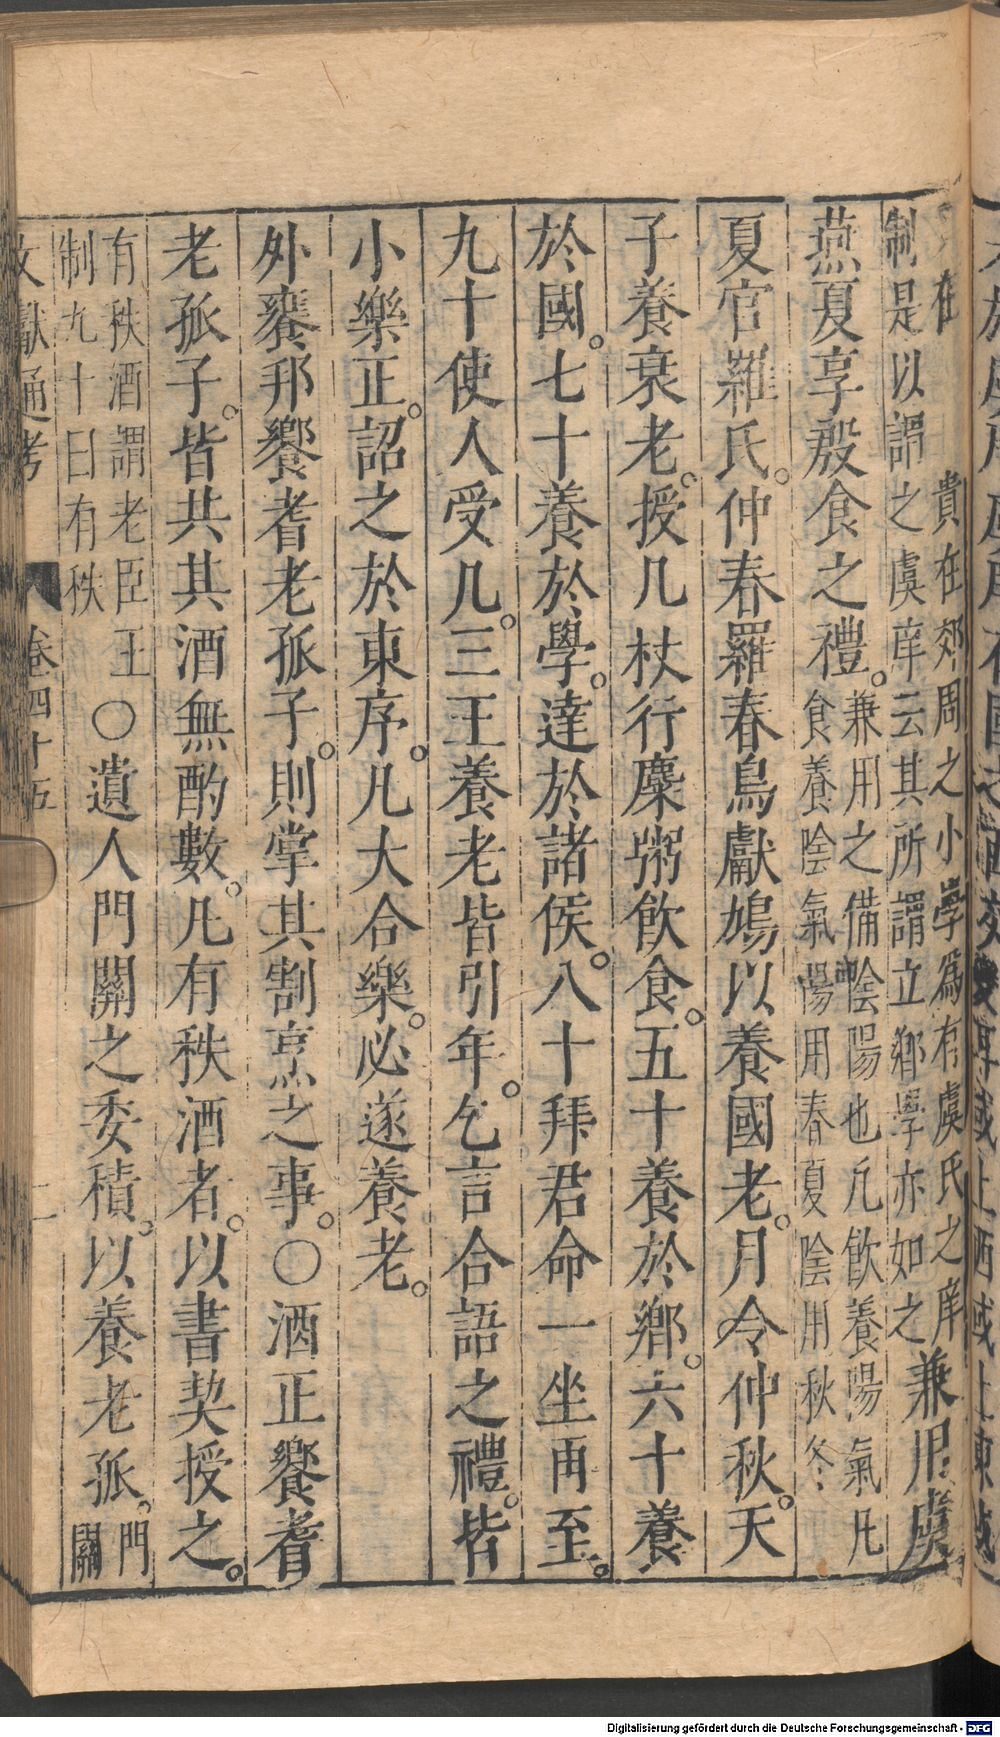 在 貴在郊周之小學爲有虞氏之庠
制是以謂之虞庠云其所謂立鄉學亦如之 兼用虞
燕夏享殷食之禮。兼用之備陰陽也凡飲養陽氣凡
食養陰氣陽用春夏陰用秋冬
夏官羅氏。仲春羅春鳥獻鳩以養國老。月令仲秋。天
子養衰老。授几杖行糜粥飲食。五十養於鄉。六十養
於國。七十養於學。達於諸侯。八十拜君命一坐再至。
九十使人受几。三王養老皆引年。乞言合語之禮。皆
小樂正。詔之於東序。凡大合樂。必遂養老。
外饔邦饗耆老孤子。則掌其割烹之事。〇酒正饗耆
老孤子。皆共其酒無酌數。凡有秩酒者。以書契授之。
有秩酒謂老臣王
制九十日有秩 〇遺人門關之委積。以養老孤。門
關
文獻通考 卷四十五 二
Digitalisierung gefördert durch die Deutsche Forschungsgemeinschaft - DFG